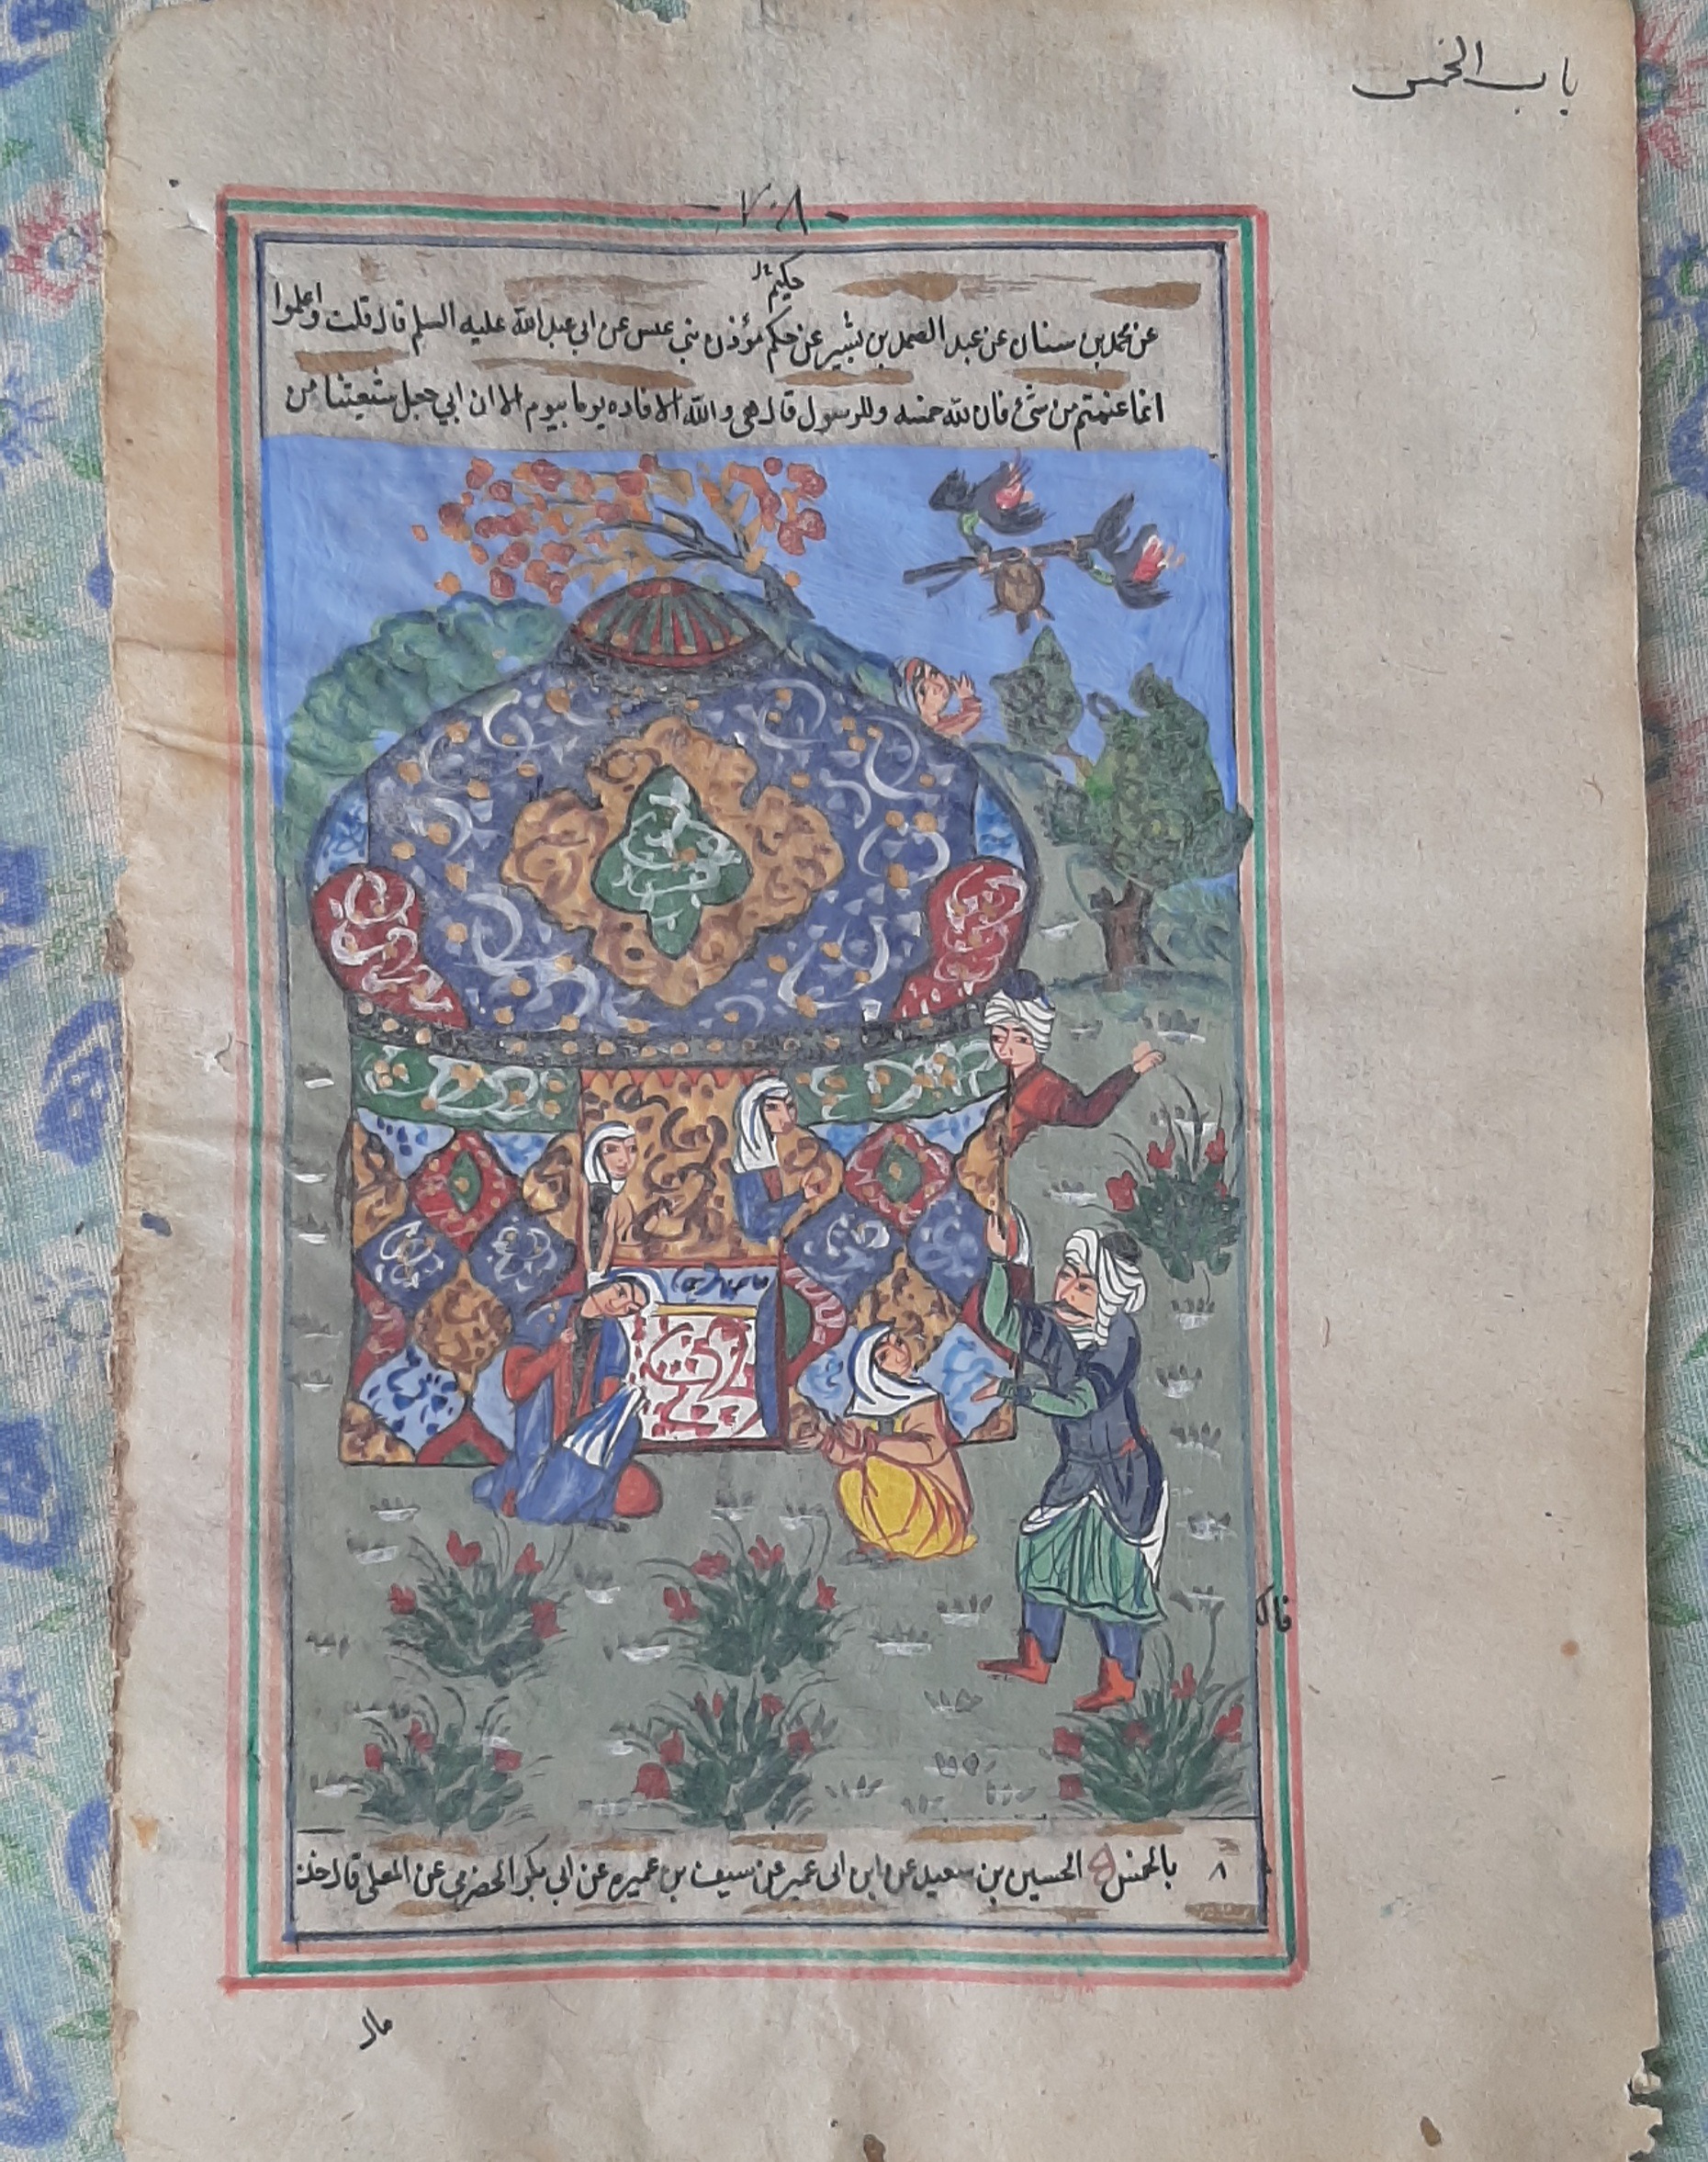 باب الخمس
٧٠٨
حكيم
عن محمد بن سنان عن عبد الصمد بن بشير عن حكم مؤذن بني عبس عن ابي عبد الله عليه السلم قال قلت واعلموا
انما غنمتم من شئ فان لله خمسه وللرسول قال هي والله الافاده يوما بيوم الا ان ابي جعل شيعتنا من
قال
٨ بالخمس الحسين بن سعيد عن ابن ابى عمير عن سيف بن عميره عن ابي بكر الحضرمي عن المعلى قال خذ
مال